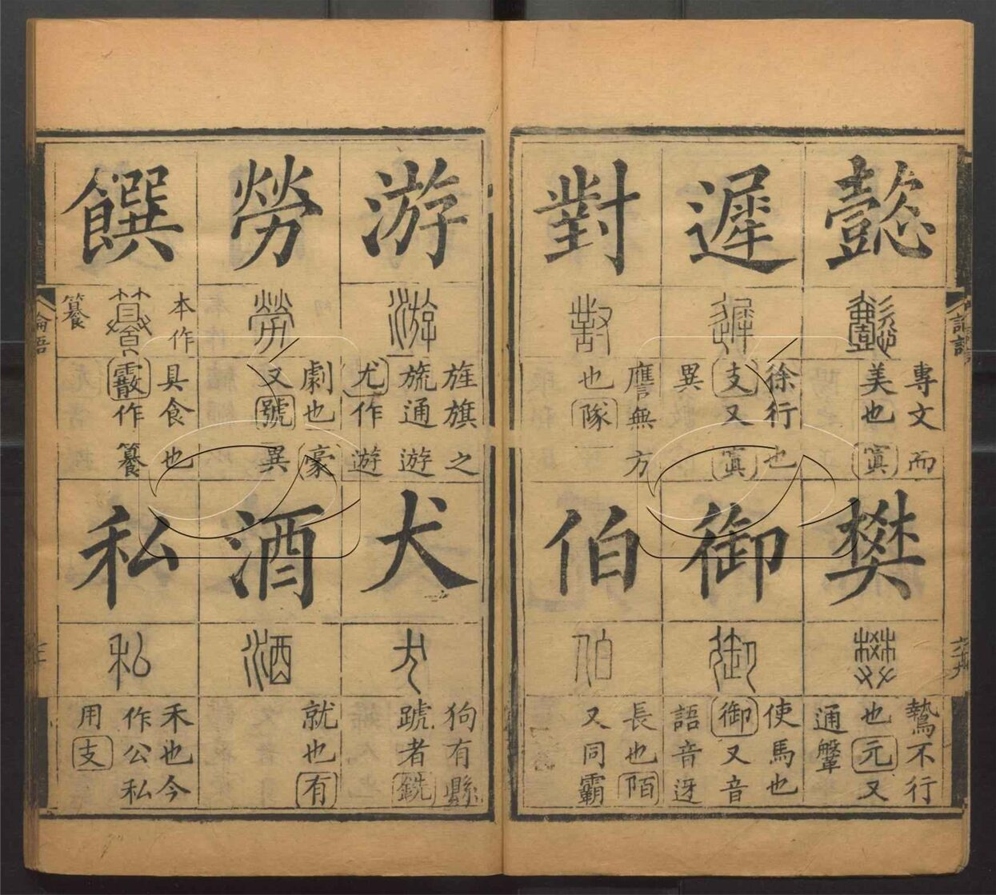 懿
懿
專文而
美也寘
樊
樊
鷙不行
也元又
通鞶
遲
遲
徐行也
支又寘
異
御
御
使馬也
御又音
語音迓
對
對
譍無方
也隊
伯
伯
長也陌
又同霸
游
游
旌旗之
旒通遊
尤作遊
犬
犬
狗有縣
蹏者銑
勞
勞
劇也豪
又號異
酒
酒
就也有
饌
本作
籑
籑
具食也
霰作籑
私
私
禾也今
作公私
用支
論語